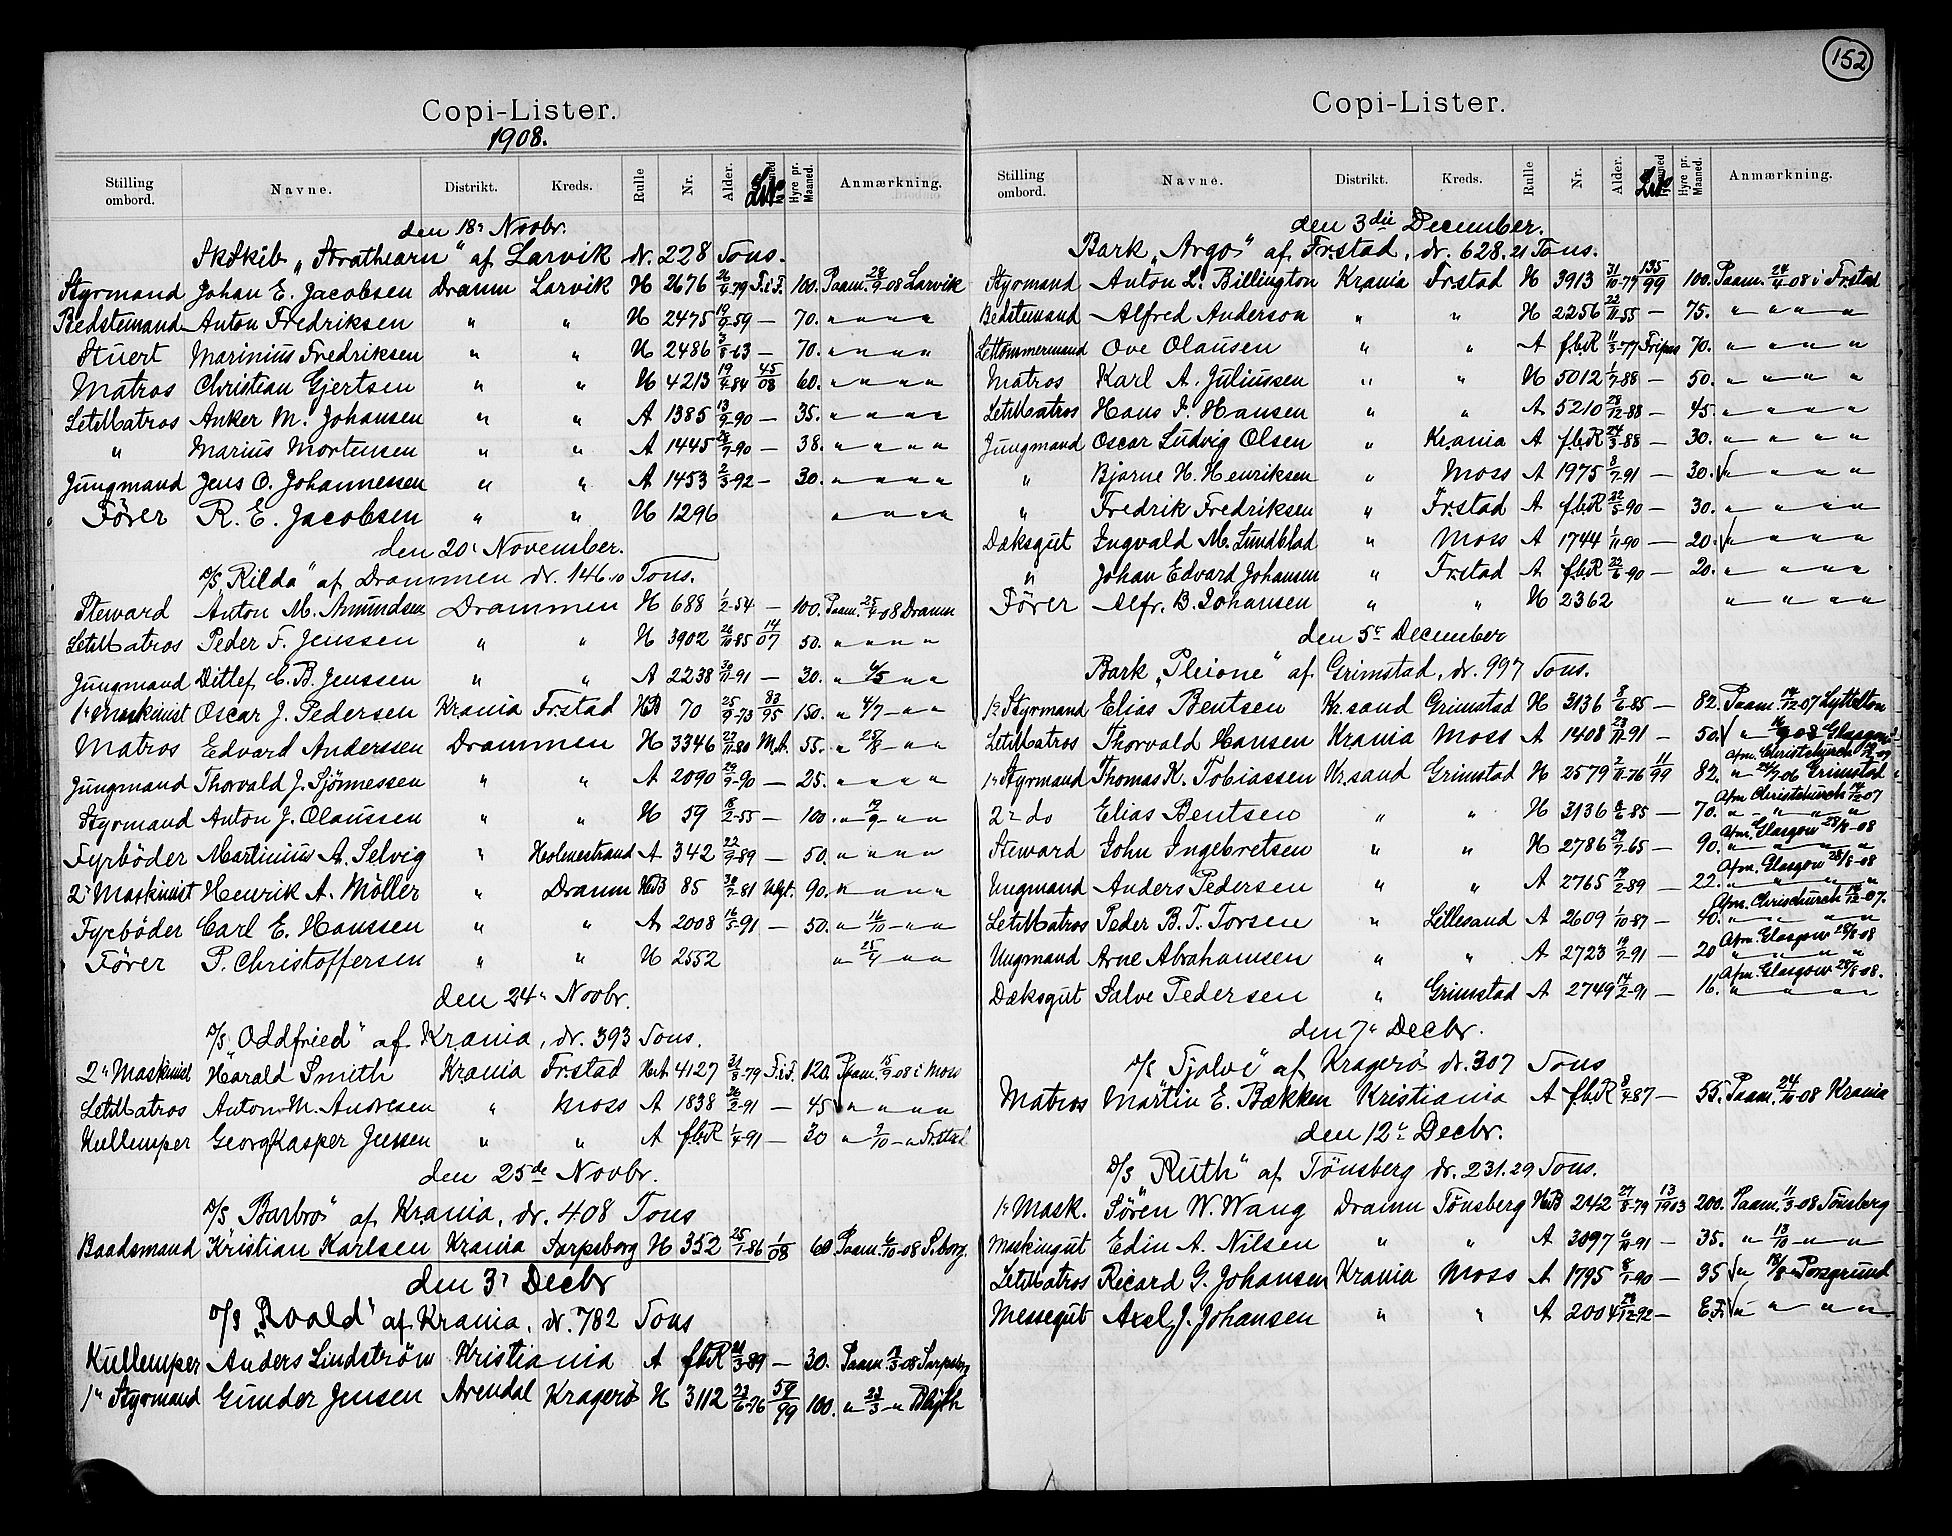 152
Copi-Lister.
1908.
Stilling ombord. Navne. Distrikt. Kreds. Rulle Nr. Alder. Hyre pr. Maaned. Anmærkning.
den 18' Novbr.
Sk.Skib „Strathearn" af Larvik dr. 228 Tons.
Styrmand Johan E. Jacobsen Dramn Larvik H 2676 26/9-79 F.i.F. 100. Paam. 28/9-08 Larvik
Bedstemand Anton Fredriksen " " H 2475 19/9-59 — 70. " " " "
Stuert Marinius Fredriksen " " H 2486 3/8-63 — 70. " " " "
Matros Christian Gjertsen " " H 4213 19/4-84 45/08 60. " " " "
LetMatros Anker M. Johansen " " A 1385 13/9-90 — 35. " " " "
" Marius Mortensen " " A 1445 28/9-90 — 38. " " " "
Jungmand Jens O. Johannessen " " A 1453 2/3-92 — 30. " " " "
Förer R. E. Jacobsen " " H 1296 " " " "
den 20' November.
D/S „Rilda" af Drammen dr. 146.10 Tons.
Steward Anton M. Amundsen Drammen H 688 1/2-54 — 100. Paam. 25/4-08 Dramn
LetMatros Peder F. Jenssen " " H 3902 26/11-85 14/07 50. " " " "
Jungmand Ditlef C. B. Jenssen " " A 2238 30/11-91 — 30. " 4/5 " "
1' Maskinist Oscar J. Pedersen Krania Fr.stad HB 70 25/9-73 83/95 150. " 4/7 — " "
Matros Edvard Anderssen Drammen H 3346 23/11-80 M.A. 55. " 25/8 — " "
Jungmand Thorvald J. Sjönnessen " " A 2090 29/9-90 — 25. " " " "
Styrmand Anton J. Olaussen " " H 59 18/2-55 — 100. " 12/9 — " "
Fyrböder Martinius A. Selvig " Holmestrand A 342 22/9-89 — 50. " " " "
2' Maskinist Henrik A. Möller " Dramn HB 85 30/7-81 Udgt. 90. " " " "
Fyrböder Carl E. Hanssen " " A 2008 16/3-91 — 50. " 16/10 — " "
Förer P. Christoffersen " " H 2552 " 25/4 " "
den 24' Novbr.
D/S „Oddfried" af Krania, dr. 393 Tons.
2' Maskinist Harald Smith Krania Fr.stad HA 4127 31/8-79 F.i.F. 120. Paam. 15/9-08 i Moss
LetMatros Anton M. Andresen " Moss A 1838 26/2-91 — 45 " " " "
Kullemper Georg Kasper Jenssen " " A f.b.R 1/4-91 — 30 " 9/10 — " Fr.stad
den 25de Novbr.
D/S „Barbro" af Krania, dr. 408 Tons
Baadsmand Kristian Karlsen Krania Sarpsborg H 352 25/7-86 1/08 60 Paam. 6/10-08 S.borg.
den 3' Decbr
D/S „Roald" af Krania, dr. 782 Tons
Kullemper Anders Lindström Kristiania A f.b.R 21/3-89 — 30. Paam. 12/3-08 Sarpsbg
1' Styrmand Gunder Jensen Arendal Kragerö H 3112 23/6-76 59/99 100. " 23/3 — " Blyth
Copi-Lister.
Stilling ombord. Navne. Distrikt. Kreds. Rulle Nr. Alder. Hyre pr. Maaned. Anmærkning.
den 3die December.
Bark „Argo" af Fr.stad, dr. 628.21 Tons.
Styrmand Anton L. Billington Krania Fr.stad H 3913 31/10-77 135/99 100. Paam. 24/4-08 i Fr.stad
Bedstemand Alfred Anderson " " H 2256 22/11-55 — 75. " " " "
Lettømmermand Ove Olausen " " A f.b.R 11/3-77 Fripas 70. " " " "
Matros Karl A. Juliussen " " H 5012 1/7-88 — 50. " " " "
LetMatros Hans J. Hansen " " A 5210 28/12-88 — 45. " " " "
Jungmand Oscar Ludvig Olsen " Krania A f.b.R 24/3-88 — 30. " " " "
" Bjarne H. Henriksen " Moss A 1975 8/7-91 — 30. " " " "
" Fredrik Fredriksen " Fr.stad A f.b.R 22/5-90 — 30. " " " "
Dæksgut Ingvald M. Lundblad " Moss A 1744 1/11-90 — 20. " " " "
" Johan Edvard Johansen " Fr.stad A f.b.R 22/6-90 — 20. " " " "
Förer Alfr. B. Johansen " " H 2362 " " " "
den 5' December
Bark „Pleione" af Grimstad, dr. 997 Tons.
1' Styrmand Elias Bentsen Kr.sand Grimstad H 3136 8/6-85 — 82. Paam. 14/12-07 Lyttelton
LetMatros Thorvald Hansen Krania Moss A 1408 23/11-91 — 50. " 16/9 08 Glasgow
Afm. Christchurch
1' Styrmand Thomas K. Tobiassen Kr.sand Grimstad H 2579 2/11-76 11/99 82. " 24/7-06 Grimstad
Afm Christchurch 14/12-07
2' do Elias Bentsen " " H 3136 8/6-85 — 70. " " " "
Afm. Glasgow 28/8-08
Steward John Ingebretsen " " H 2786 29/7-65 — 90. " " " "
Afm. Glasgow 28/8-08
Ungmand Anders Pedersen " " A 2765 19/2-89 — 22. " " " "
Afm. Chrischurch 14/12-07.
LetMatros Peder B. T. Torsen " Lillesand A 2609 1/10-87 — 40. " " " "
Afm. Glasgow 28/8-08
Ungmand Arne Abrahamsen " " A 2723 19/7-91 — 20 " " " "
Afm. Glasgow 28/8-08.
Dæksgut Salve Pedersen " Grimstad A 2749 14/2-91 — 16. " " " "
den 7' Decbr.
D/S „Tjalve" af Kragerö dr. 307 Tons
Matros Martin E. Bækken Kristiania A f.b.R 8/4-87 — 55. Paam. 24/10-08 Krania
den 12' Decbr.
D/S „Ruth" af Tönsberg dr. 231.29 Tons.
1' Mask. Sören W. Wang Dramn Tönsberg HB 2142 27/8-79 13/1903 200. Paam. 11/3-08 Tönsberg
Maskingut Edin A. Nilsen " " A 3097 6/11-91 — 35. " 13/10 — " "
LetMatros Ricard G. Johansen Krania Moss A 1795 8/1-90 — 35 " 18/8 — Porsgrund
Messegut Axel J. Johansen " " A 2004 28/12-92 — E.F. " " " "